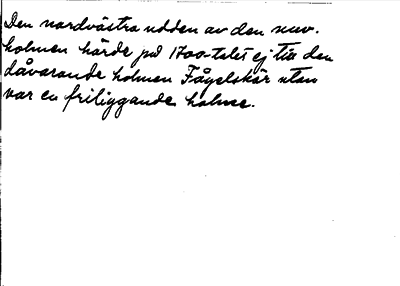 Den nordvästra udden av den nuv.
holmen hörde på 1700-talet ej till den
dåvarande holmen Fågelskär utan
var en friliggande holme.